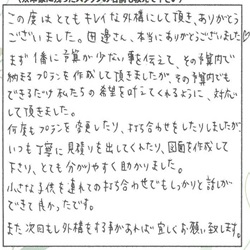 この度はとてもキレイな外構にして頂き、ありがとう
ございました。田邉さん、本当にありがとうございました♡
まず1番に予算が少ない事を伝えて、その予算内で
納まるプランを作成して頂きましたが、その予算内でも
できるだけ私たちの希望を叶えてくれるように、対応
して頂きました。
何度もプランを変更したり、打ち合わせをしたりしましたが、
いつも丁寧に見積りを出してくれたり、図面を作成して
下さり、とても分かりやすく助かりました。
小さな子供を連れての打ち合わせでもしっかりと話しが
できて良かったです。
また次回もし外構をする事があれば宜しくお願い致します。